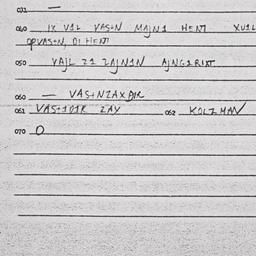 031 —
040 IX VS1L VAS+N MAJN1 HENT XU1L
OPVAS+N, O1 HENT
050 VAJL Z1 ZAJN1N AJNG1RIXT
060 — VAS+NZAXBIR
061 VAS+1O1R ZAY 062 KOLZMAN
070 O